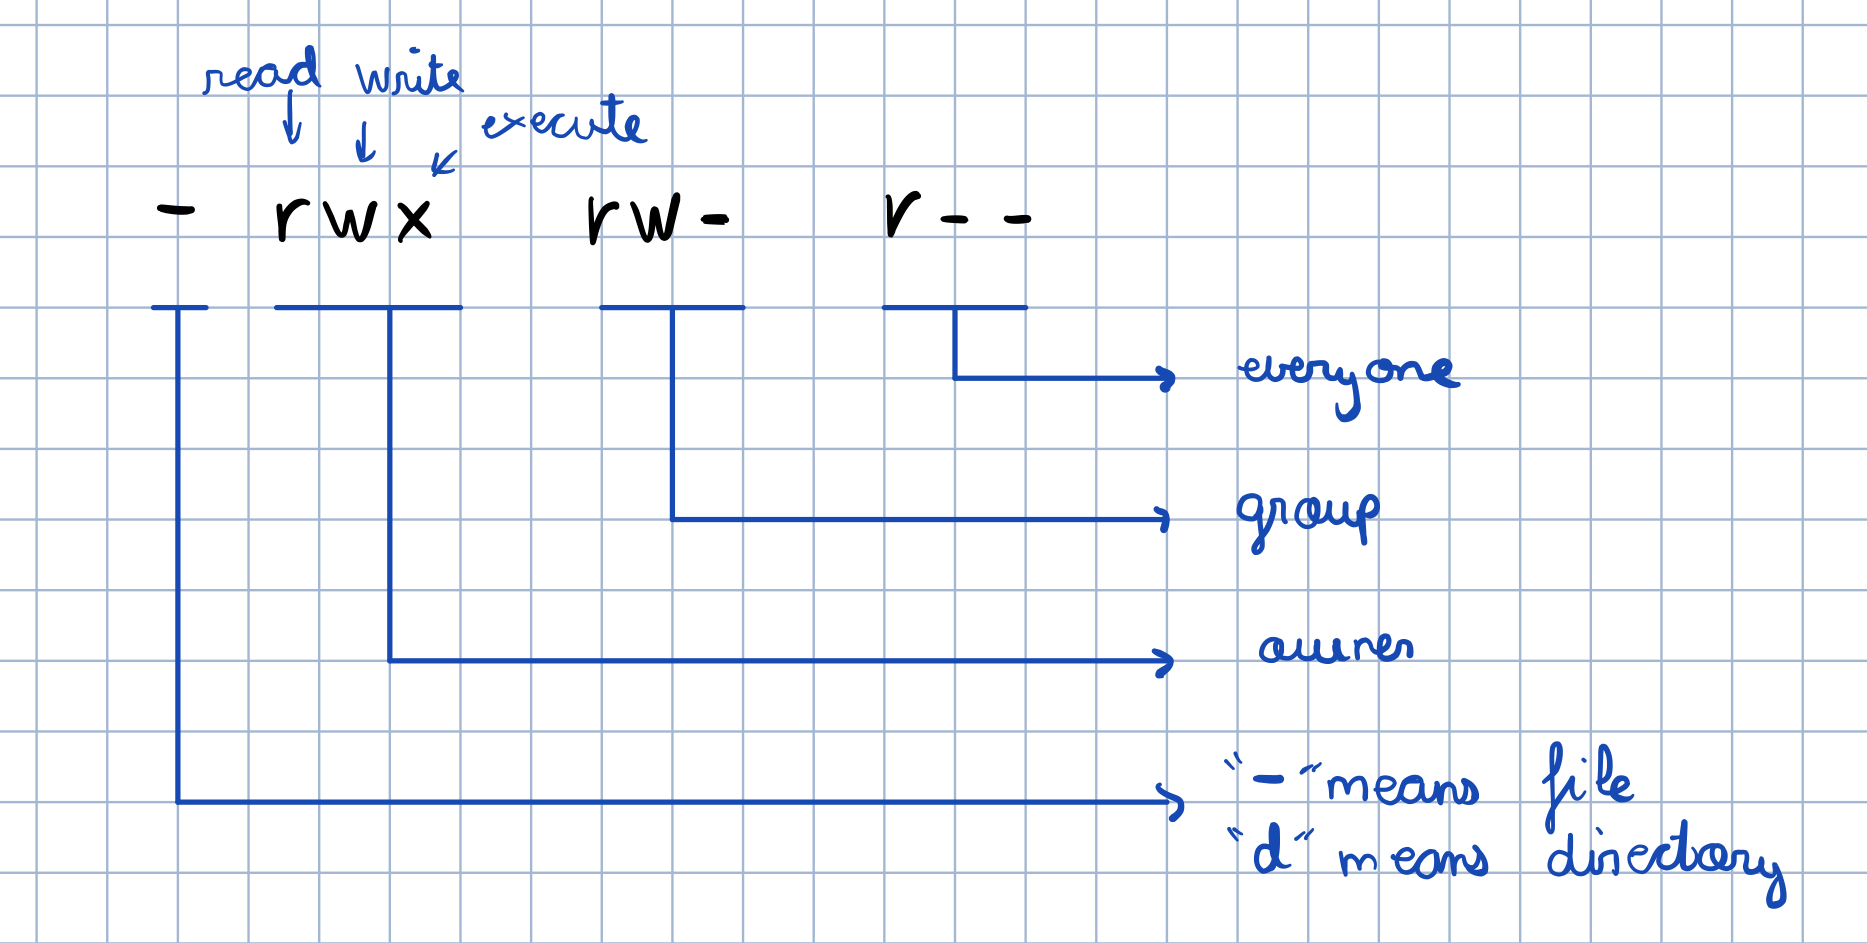 read write
execute
- rwx rw- r--
everyone
group
owner
"-" means file
"d" means directory